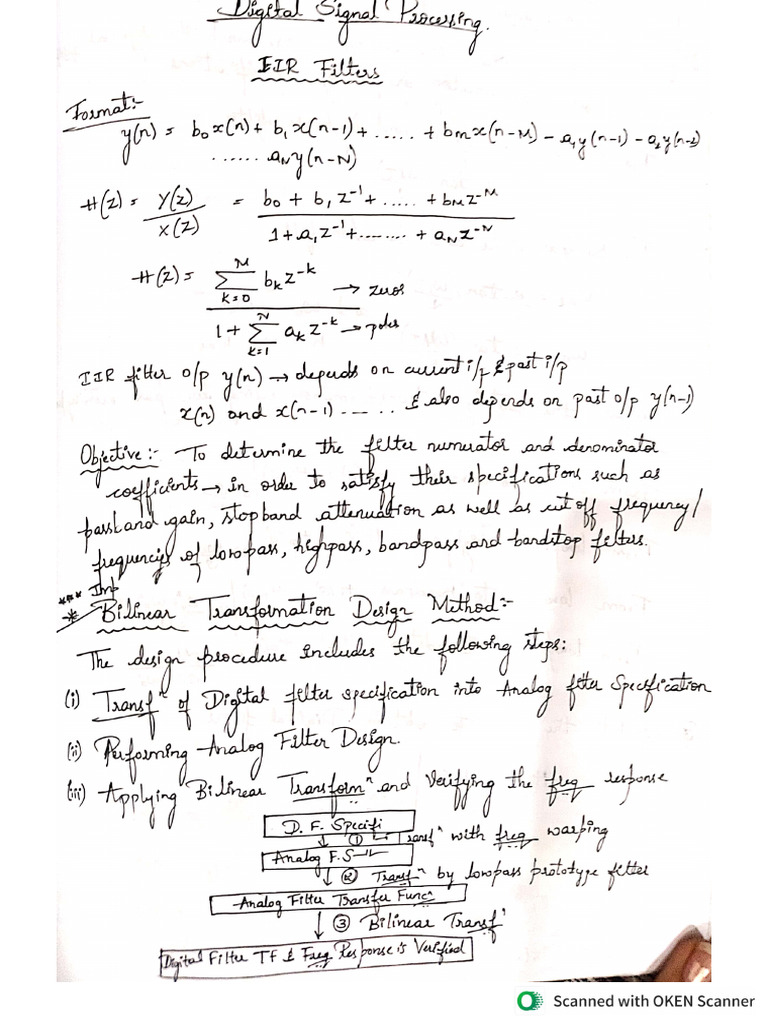 Digital Signal Processing.
IIR Filters
Format:-
y(n) = b₀x(n) + b₁x(n-1) + ..... + bₘx(n-M) - a₁y(n-1) - a₂y(n-2)
...... aₙy(n-N)
H(z) = Y(z)/X(z) = (b₀ + b₁z⁻¹ + ..... + bₘz⁻ᴹ)/(1 + a₁z⁻¹ + ....... + aₙz⁻ᴺ)
H(z) = (∑ₖ₌₀ᴹ bₖz⁻ᵏ → zeros)/(1 + ∑ₖ₌₁ᴺ aₖz⁻ᵏ → poles)
IIR filter o/p y(n) → depends on current i/p & past i/p
x(n) and x(n-1) ---- .. & also depends on past o/p y(n-1)
Objective:- To determine the filter numerator and denominator
coefficients → in order to satisfy their specifications such as
passband gain, stopband attenuation as well as cut off frequency/
frequencies of lowpass, highpass, bandpass and bandstop filters.
*** Imp
* Bilinear Transformation Design Method:-
The design procedure includes the following steps:
(i) Transfⁿ of Digital filter specification into Analog filter Specification
(ii) Performing Analog Filter Design.
(iii) Applying Bilinear Transformⁿ and Verifying the freq response
D. F. Specifi
↓ ① Transfⁿ with freq warping
Analog F. S
↓ ② Transfⁿ by lowpass prototype filter
Analog Filter Transfer Func
↓ ③ Bilinear Transfⁿ
Digital Filter TF & Freq Response is Verified
Scanned with OKEN Scanner